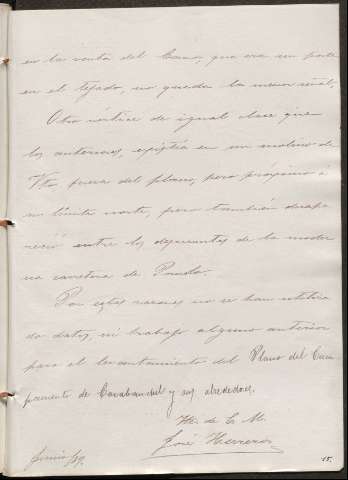 en la venta del Cano, que era un poste
en el tejado, no queda la menor señal,
Otro vértice de igual clase que
los anteriores, existía en un molino de
Vto, fuera del plano, pero próximo á
su límite norte, pero también desapa
reció entre los desmontes de la moder
na carretera de
Por estas razones no se han utiliza
do datos, ni trabajo alguno anterior
para el levantamiento del Plano del Cam
pamento de Carabanchel y sus alrededores.
de E. M.
José Herreros
Junio
15.